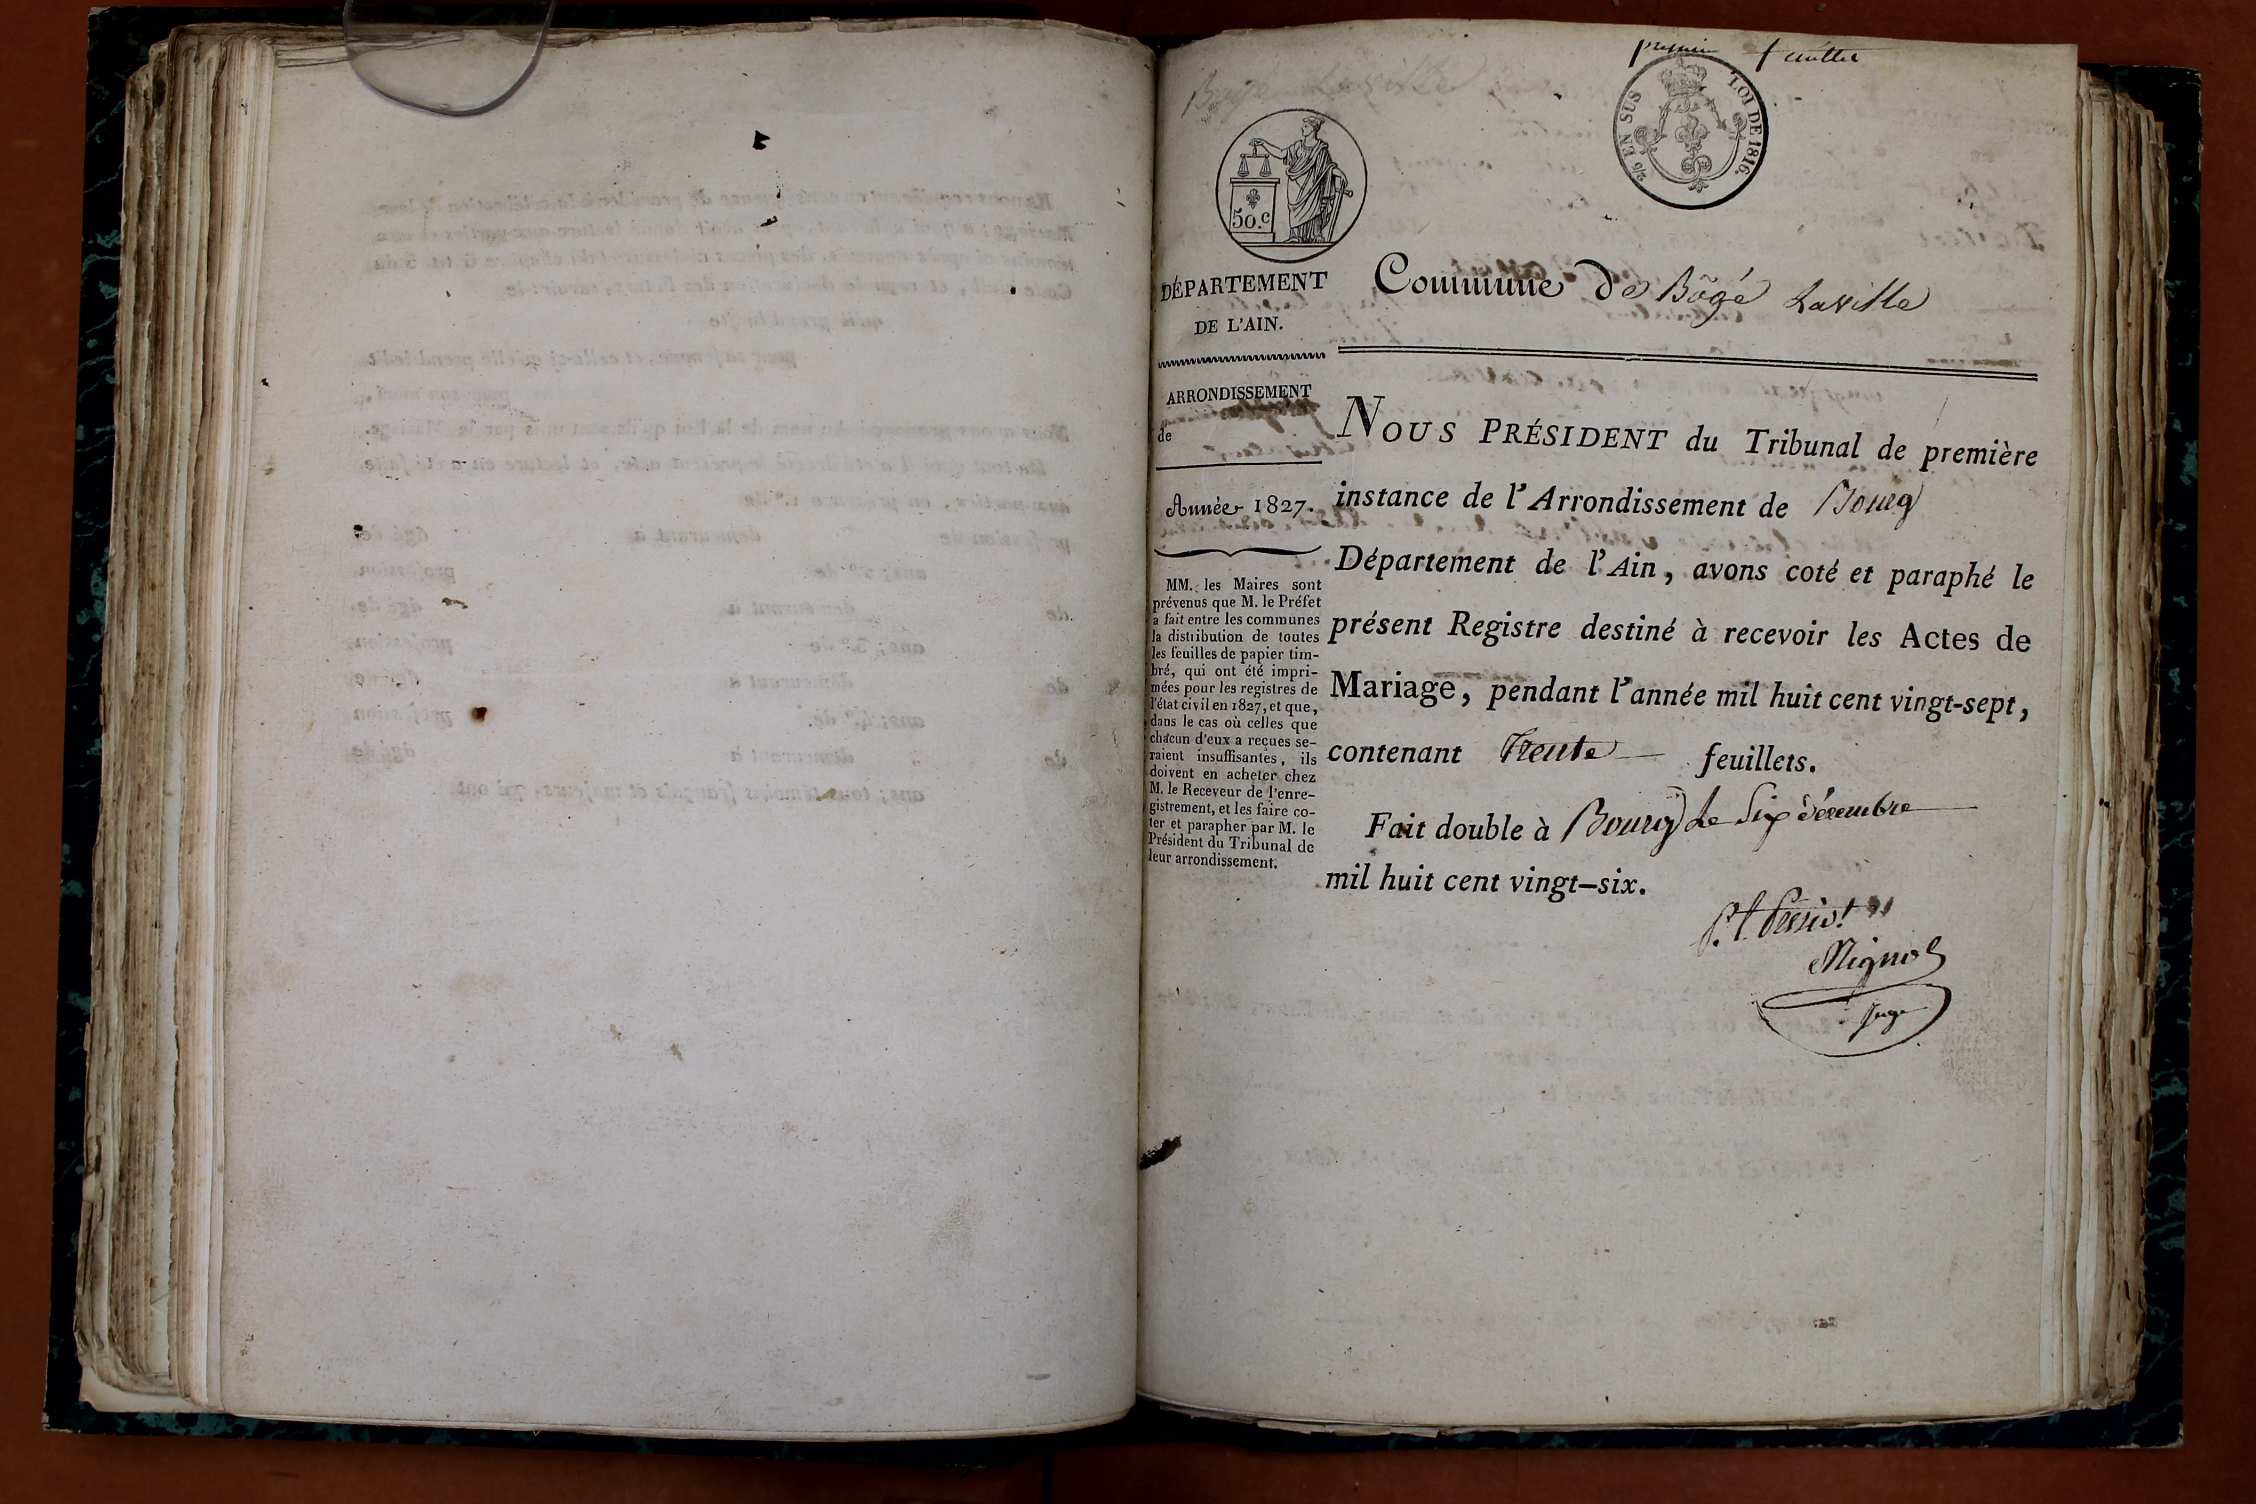 premier feuillet
2/5 EN SUS
LOI DE 1816.
50.c
DÉPARTEMENT
DE L'AIN.
ARRONDISSEMENT
de
Année 1827.
MM. les Maires sont
prévenus que M. le Préfet
a fait entre les communes
la distribution de toutes
les feuilles de papier tim-
bré, qui ont été impri-
mées pour les registres de
l'état civil en 1827, et que,
dans le cas où celles que
chacun d'eux a reçues se-
raient insuffisantes, ils
doivent en acheter chez
M. le Receveur de l'enre-
gistrement, et les faire co-
ter et parapher par M. le
Président du Tribunal de
leur arrondissement.
Commune de Bâgé Laville
NOUS PRÉSIDENT du Tribunal de première
instance de l'Arrondissement de Bourg
Département de l'Ain, avons coté et paraphé le
présent Registre destiné à recevoir les Actes de
Mariage, pendant l'année mil huit cent vingt-sept,
contenant Trente feuillets.
Fait double à Bourg Le Six Décembre
mil huit cent vingt-six.
Juge